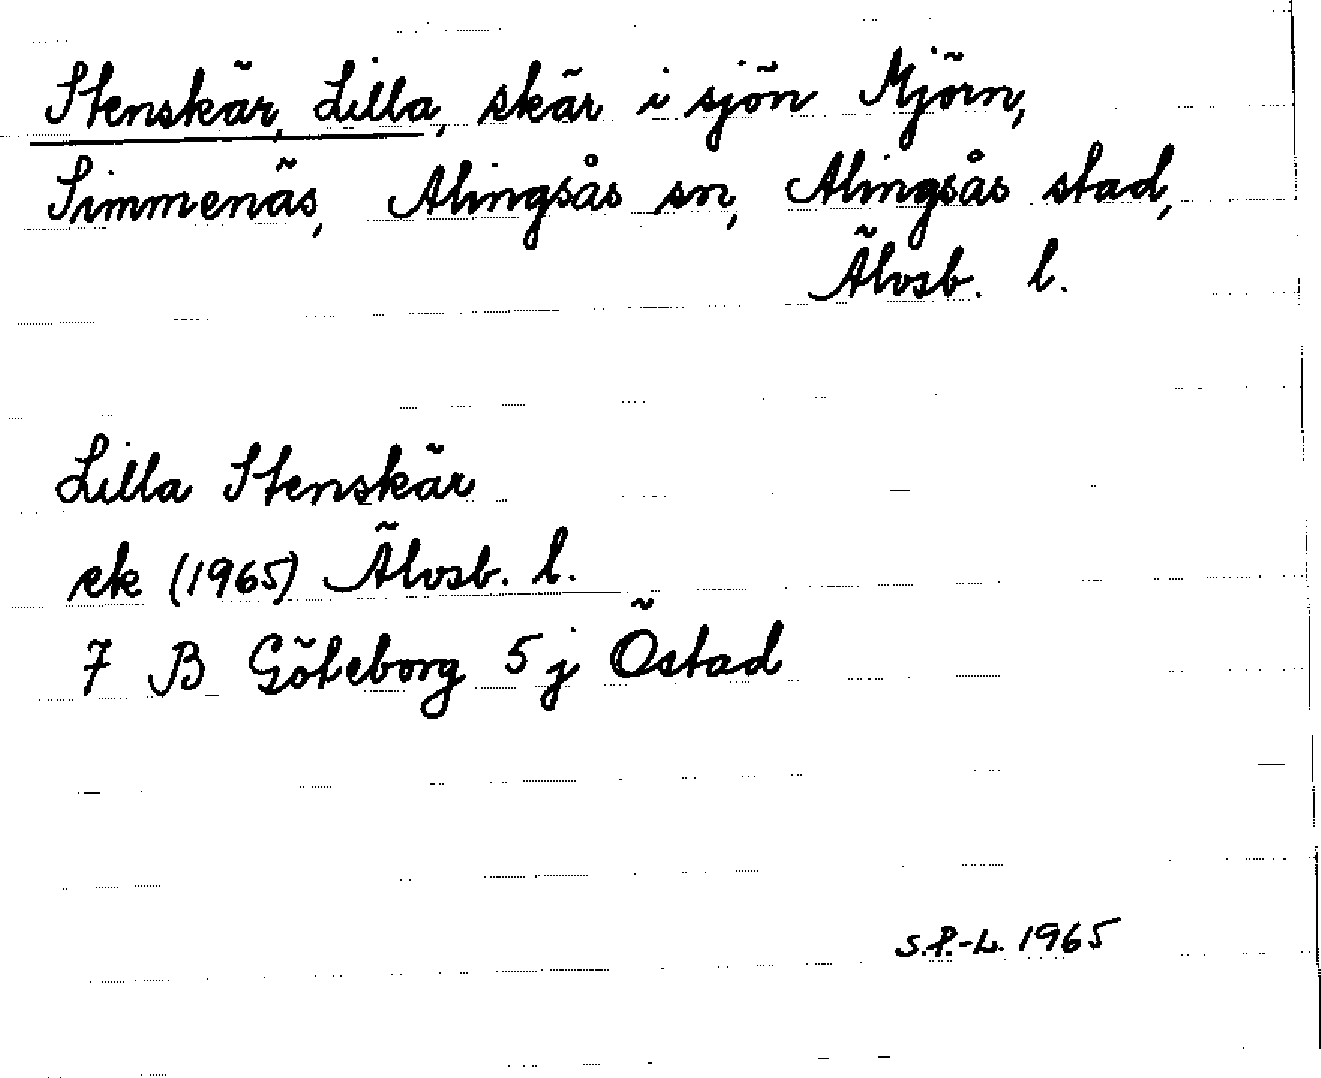 Stenskär, Lilla, skär i sjön Mjörn,
Simmenäs, Alingsås sn, Alingsås stad,
Älvsb. l.
Lilla Stenskär
ek (1965) Älvsb. l.
7 B Göteborg 5 j Östad
S.P.-L. 1965